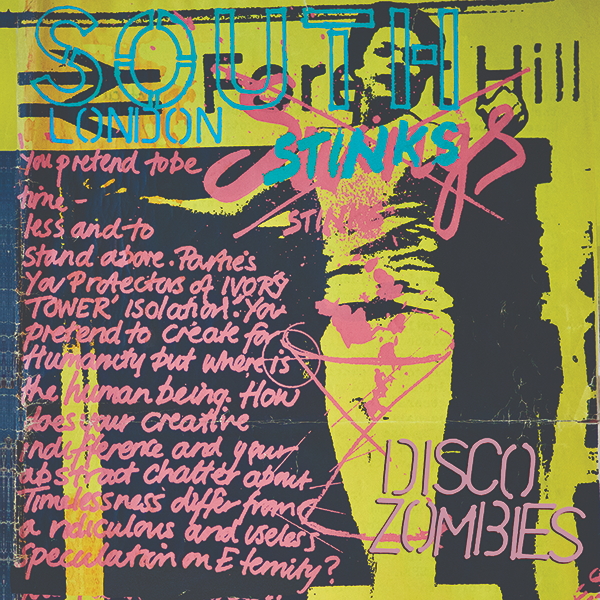 SOUTH
LONDON
Forest Hill
STINKS
STINKS
You pretend to be
time-
less and to
stand above. Parties
You Protectors of IVORY
TOWER' ISOlation! You
pretend to create for
Humanity but where is
the human being. How
does your creative
indifference and your
abstract chatter about
Timelessness differ from
a ridiculous and useless
speculation on Eternity?
DISCO
ZOMBIES